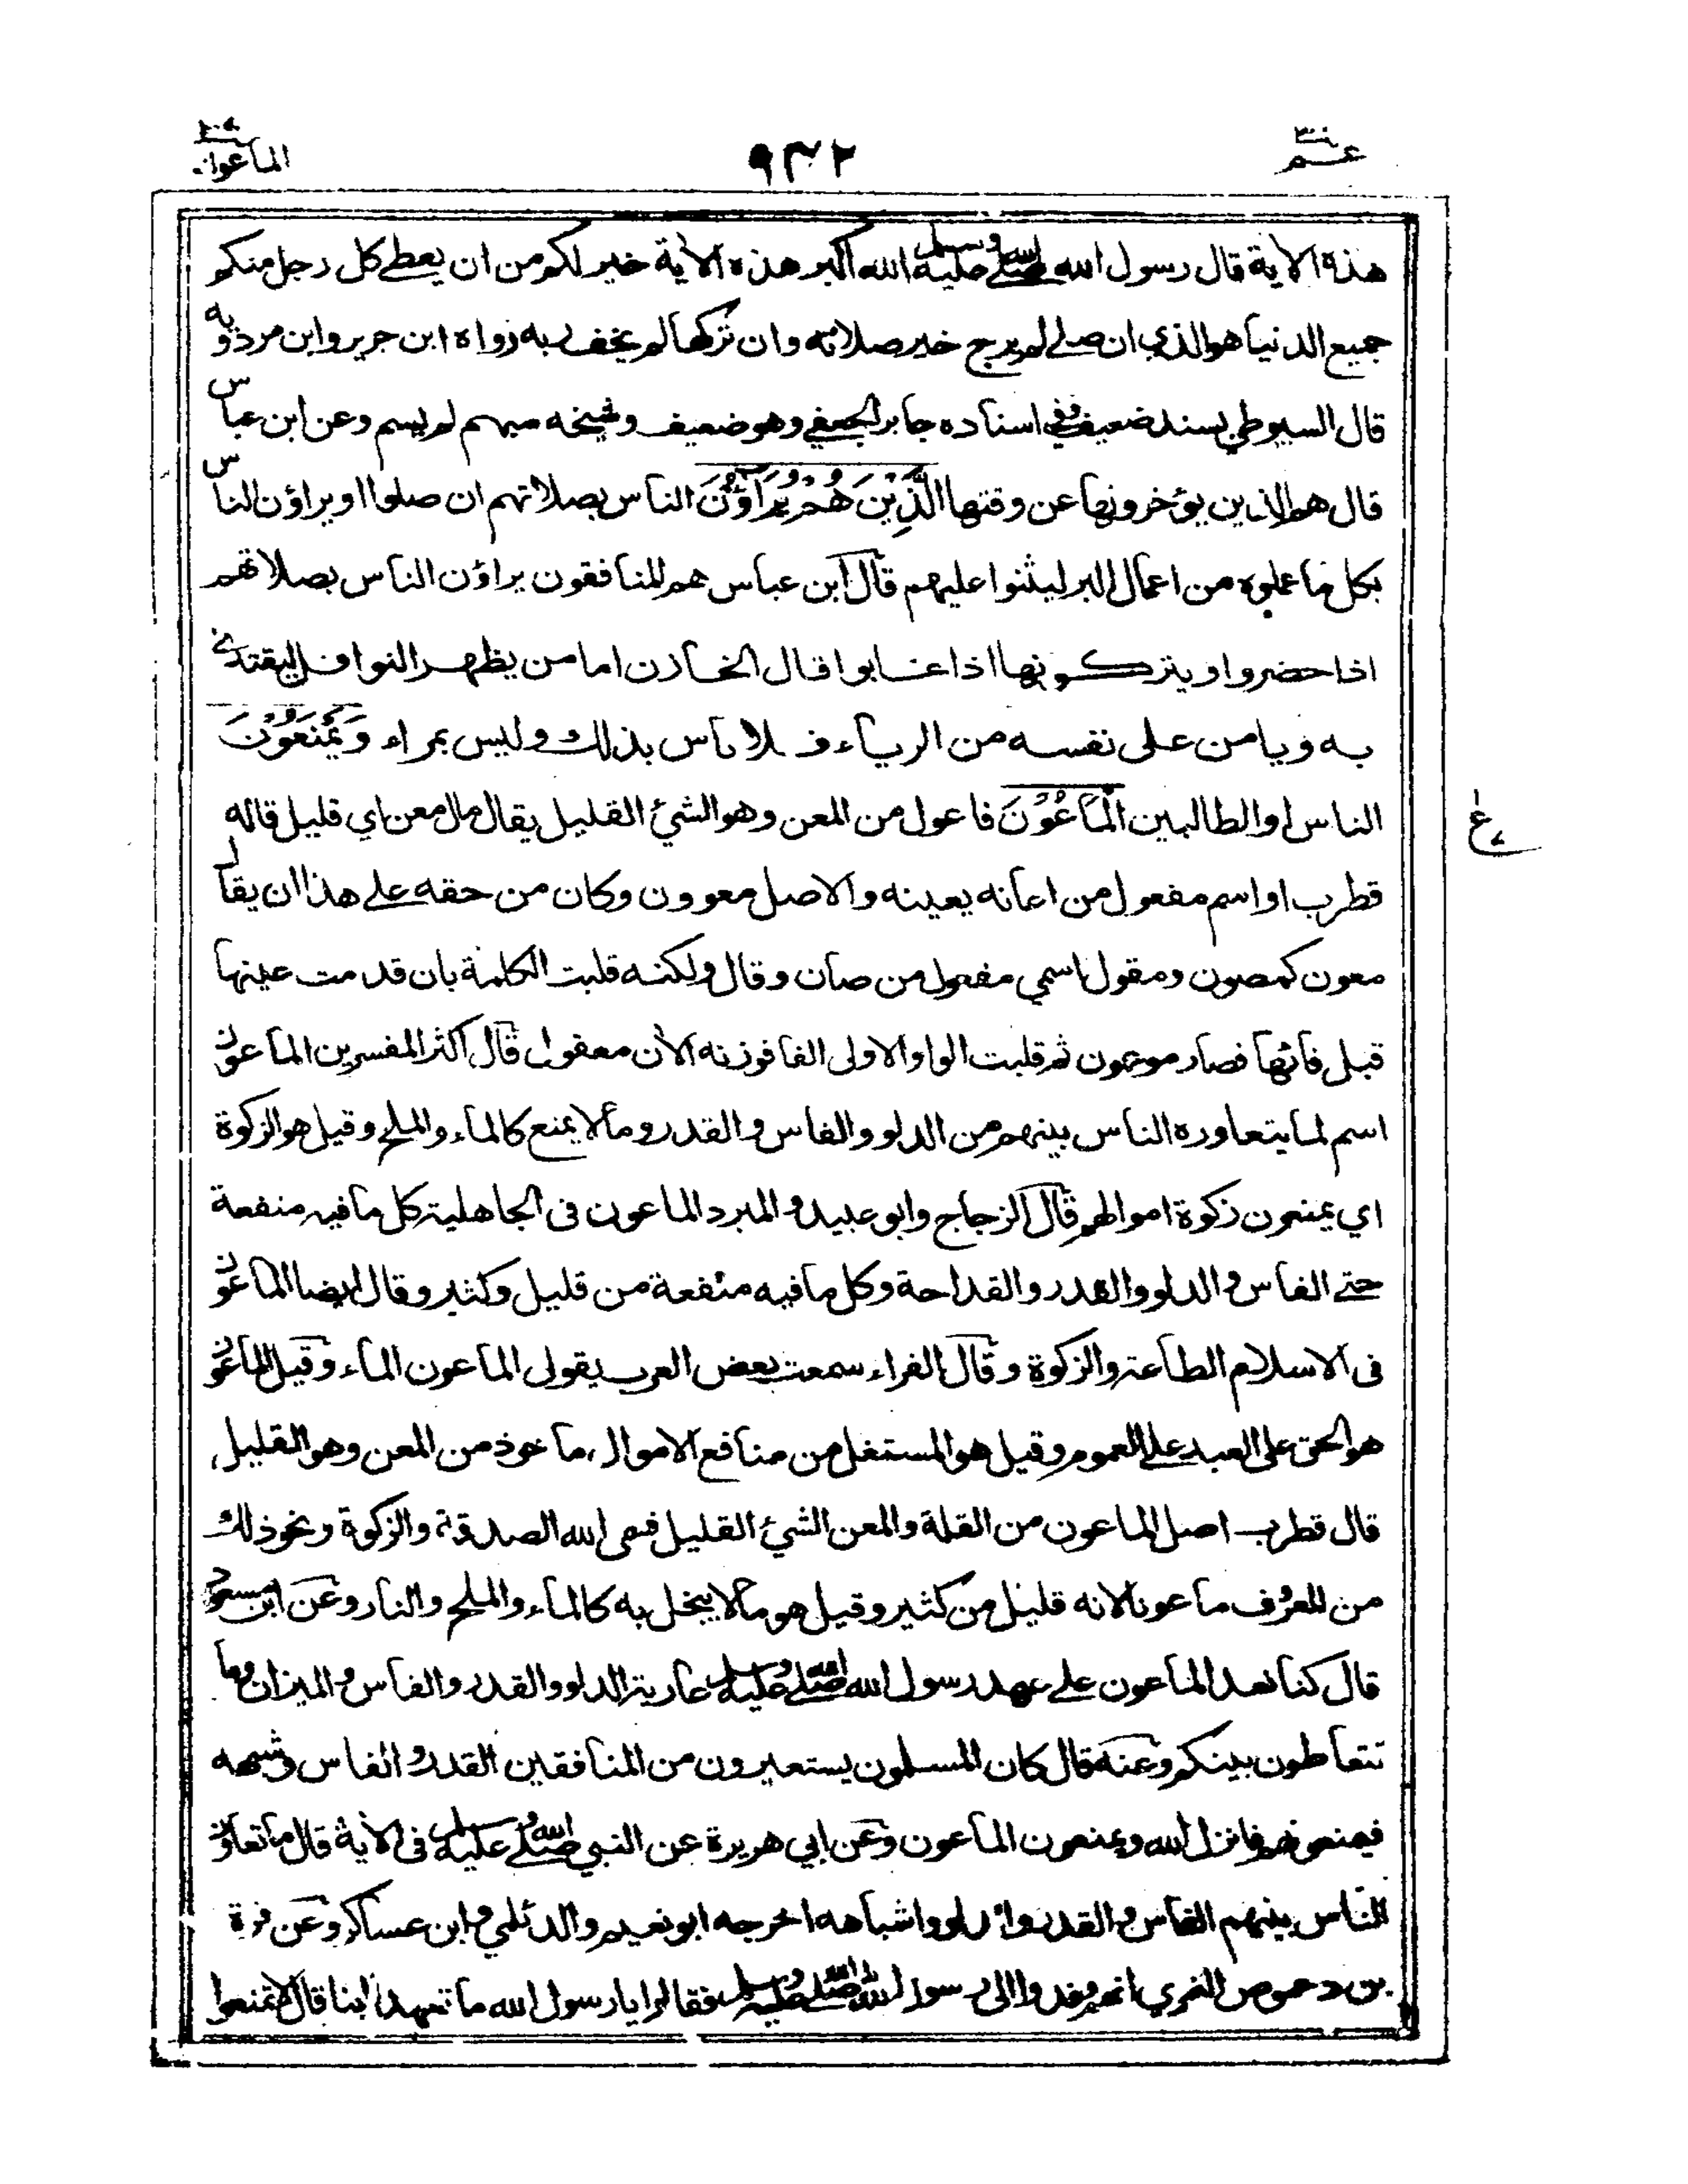 عم
٩٣٢
الماعون
هذه الاية قال رسول الله صلى الله عليه وسلم الله اكبر هذه الاية خير لكم من ان يعطى كل رجل منكم
جميع الدنيا هو الذي ان صلى لم يرج خير صلاته وان تركها لم يخف ربه رواه ابن جرير وابن مردويه
قال السيوطي بسند ضعيف وفي اسناده جابر الجعفي وهو ضعيف وشيخه مبهم لم يسم وعن ابن عباس
قال هم الذين يؤخرونها عن وقتها الَّذِيْنَ هُمْ يُرَآؤُنَ الناس بصلاتهم ان صلوا او يراؤن الناس
بكل ما عملوه من اعمال البر ليثنوا عليهم قال ابن عباس هم المنافقون يراؤن الناس بصلاتهم
اذا حضروا ويتركونها اذا غابوا قال الخازن اما من يظهر النوافل ليقتدى
به ويامن على نفسه من الرياء فلا باس بذلك وليس بمراء وَيَمْنَعُوْنَ
الناس او الطالبين الْمَاعُوْنَ فاعول من المعن وهو الشئ القليل يقال مال معن اي قليل قاله
قطرب او اسم مفعول من اعانه يعينه والاصل معوون وكان من حقه على هذا ان يقال
معون كمصون ومقول اسمي مفعول من صان وقال ولكنه قلبت الكلمة بان قدمت عينها
قبل فائها فصار موعون ثم قلبت الواو الاولى الفا فوزنه الان معفول قال اكثر المفسرين الماعون
اسم لما يتعاوره الناس بينهم من الدلو والفاس والقدر وما لا يمنع كالماء والملح وقيل هو الزكوة
اي يمنعون زكوة اموالهم قال الزجاج وابو عبيد والمبرد الماعون فى الجاهلية كل ما فيه منفعة
حتى الفاس والدلو والقدر والقداحة وكل ما فيه منفعة من قليل وكثير وقال ايضا الماعون
فى الاسلام الطاعة والزكوة وقال الفراء سمعت بعض العرب يقول الماعون الماء وقيل الماعون
هو الحق على العبد على العموم وقيل هو المستغل من منافع الاموال، ماخوذ من المعن وهو القليل،
قال قطرب اصل الماعون من القلة والمعن الشئ القليل فسمى الله الصدقة والزكوة ونحو ذلك
من المعروف ماعونا لانه قليل من كثير وقيل هو ما لا يبخل به كالماء والملح والنار وعن ابن مسعود
قال كنا نعد الماعون على عهد رسول الله صلى الله عليه وسلم عارية الدلو والقدر والفاس والميزان وما
تتعاطون بينكم وعنه قال كان المسلمون يستعيرون من المنافقين القدر والفاس وشبهه
فيمنعونهم فانزل الله ويمنعون الماعون وعن ابي هريرة عن النبي صلى الله عليه وسلم فى الاية قال ما تعاون
الناس بينهم الفاس والقدر والدلو واشباهه اخرجه ابو نعيم والديلمي وابن عساكر وعن قرة
بن دعموص النمري انهم وفدوا الى رسول الله صلى الله عليه وسلم فقالوا يا رسول الله ما تعهد الينا قال لا تمنعوا